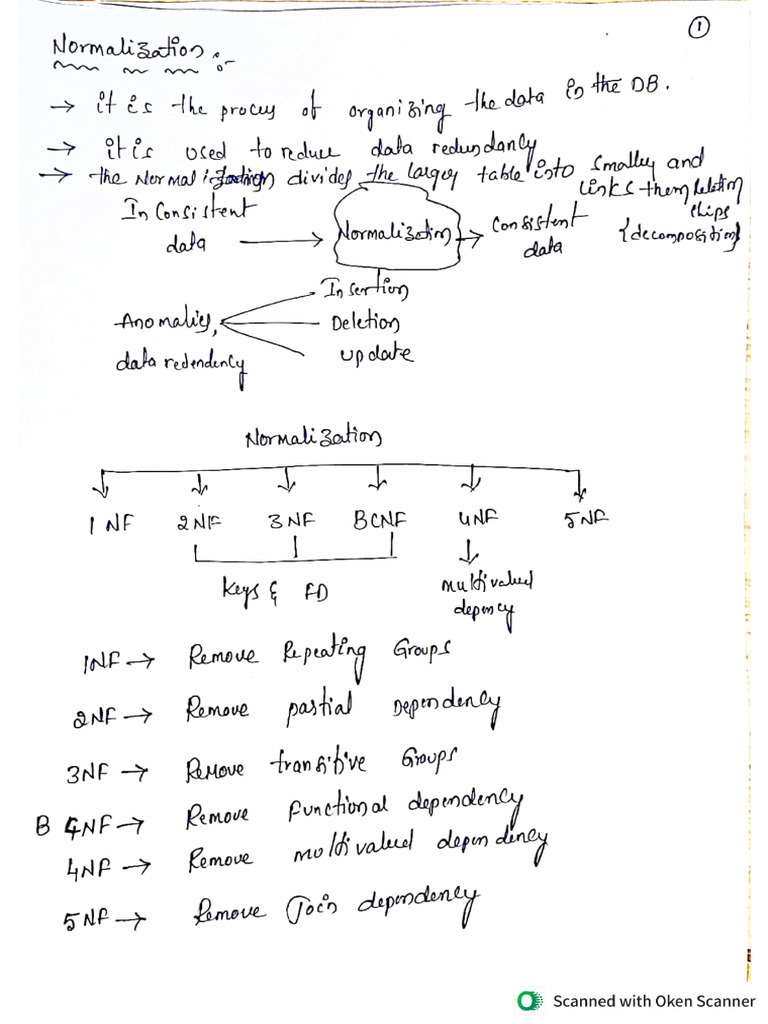 ①
Normalization :-
→ it is the process of organizing the data in the DB.
→ it is used to reduce data redundancy
→ the Normalization divides the larger table into smaller and
links them Relation
ships
{decomposition}
InConsistent
data → Normalization → Consistent
data
Insertion
Anomalies, Deletion
data redendency update
Normalization
1 NF 2NF 3NF BCNF 4NF 5NF
Keys & FD
multivalued
depency
1NF → Remove Repeating Groups
2NF → Remove partial Dependency
3NF → Remove transitive Groups
B CNF → Remove functional dependency
4NF → Remove multivalued dependency
5NF → Remove Join dependency
Scanned with Oken Scanner